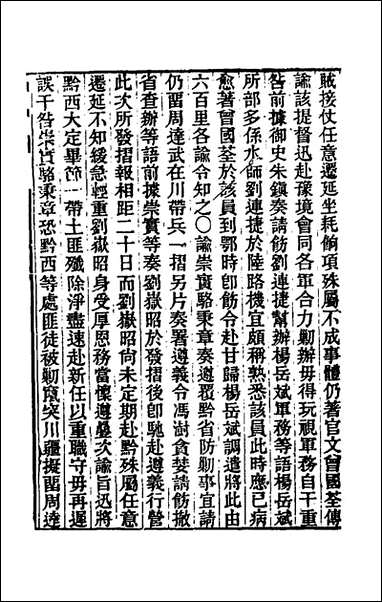 賊接仗任意遷延坐耗餉項殊屬不成事體仍著官文曾國荃傳
諭該提督迅赴豫境會同各軍合力勦辦毋得玩視軍務自干重
咎前據御史朱鎮奏請飭劉連捷幫辦楊岳斌軍務等語楊岳斌
所部多係水師劉連捷於陸路機宜頗稱熟悉該員此時應已病
愈著曾國荃於該員到鄂時卽飭令赴甘歸楊岳斌調遣將此由
六百里各諭令知之〇諭崇實駱秉章奏遵覆黔省防勦事宜請
仍畱周達武在川帶兵一摺另片奏署遵義令馮澍貪婪請飭撤
省查辦等語前據崇實等奏劉嶽昭於發摺後卽馳赴遵義行營
此次所發摺報相距二十日而劉嶽昭尙未定期赴黔殊屬任意
遷延不知緩急輕重劉嶽昭身受厚恩務當懍遵疊次諭旨迅將
黔西大定畢節一帶土匪殲除淨盡速赴新任以重職守毋再遲
誤干咎崇實駱秉章恐黔西等處匪徒被勦竄突川疆擬畱周達